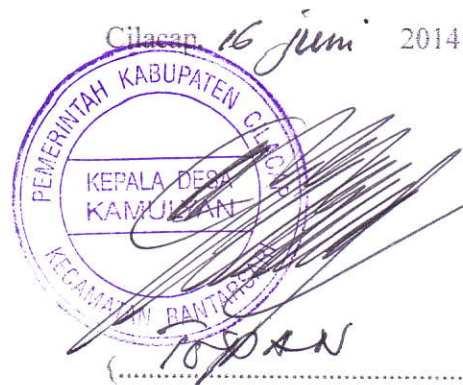 Cilacap, 16 juni 2014
PEMERINTAH KABUPATEN CILACAP
KEPALA DESA
KAMULYAN
KECAMATAN BANTARSARI
(....................